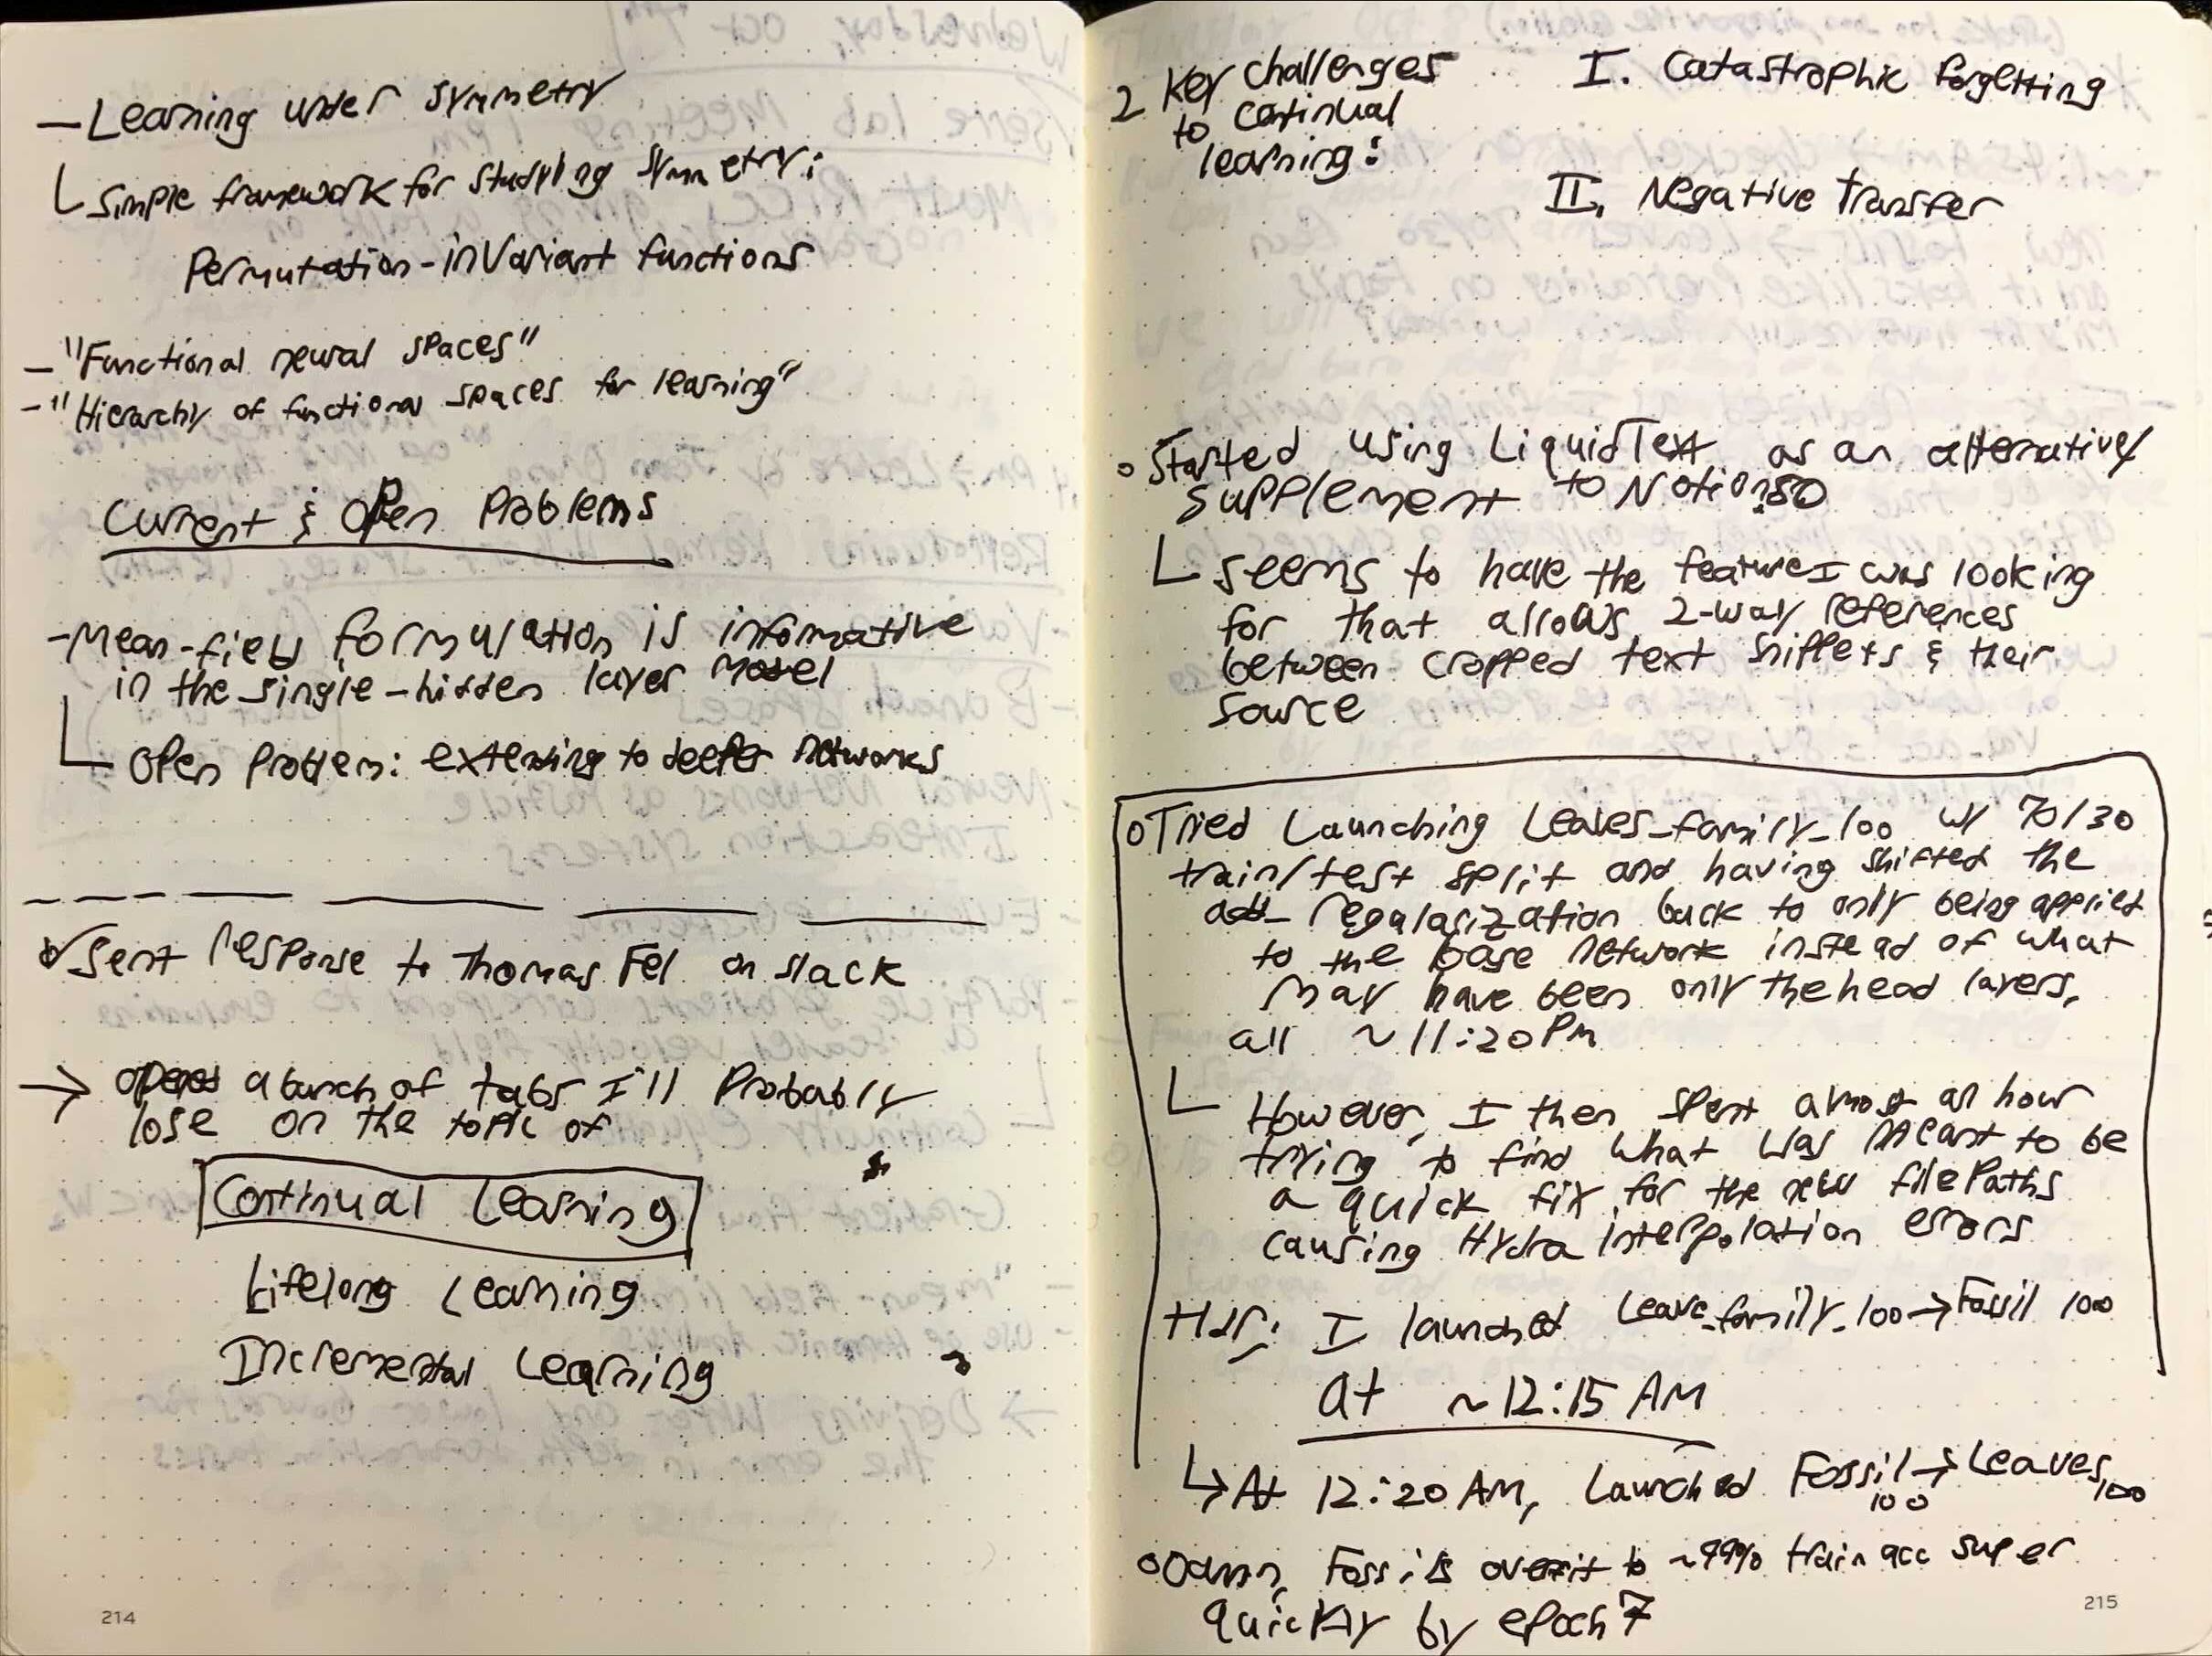 - Learning under symmetry
Simple framework for studying symmetry:
Permutation-invariant functions
- "Functional neural spaces"
- "Hierarchy of functional spaces for learning"
Current & Open Problems
- Mean-field formulation is informative
in the single-hidden layer model
Open Problem: extending to deeper networks
Sent response to Thomas Fel on slack
→ opened a bunch of tabs I'll Probably
lose on the topic of
Continual Learning
Lifelong Learning
Incremental Learning
214
2 Key challenges
to continual
learning:
I. Catastrophic forgetting
II. Negative transfer
o Started using LiquidText as an alternative/
supplement to Notion
seems to have the feature I was looking
for that allows 2-way references
between cropped text snippets & their
source
o Tried Launching Leaves_family_100 w/ 70/30
train/test split and having shifted the
regularization back to only being applied
to the base network instead of what
may have been only the head layers,
all ~11:20 PM
However, I then spent almost an hour
trying to find what was meant to be
a quick fix for the new filepaths
causing Hydra interpolation errors
I launched Leave_family_100 → Fossil 100
at ~12:15 AM
↳ At 12:20 AM, Launched Fossil 100 → Leaves 100
o Damn, Fossils overfit to ~99% train acc super
quickly by epoch 7
215